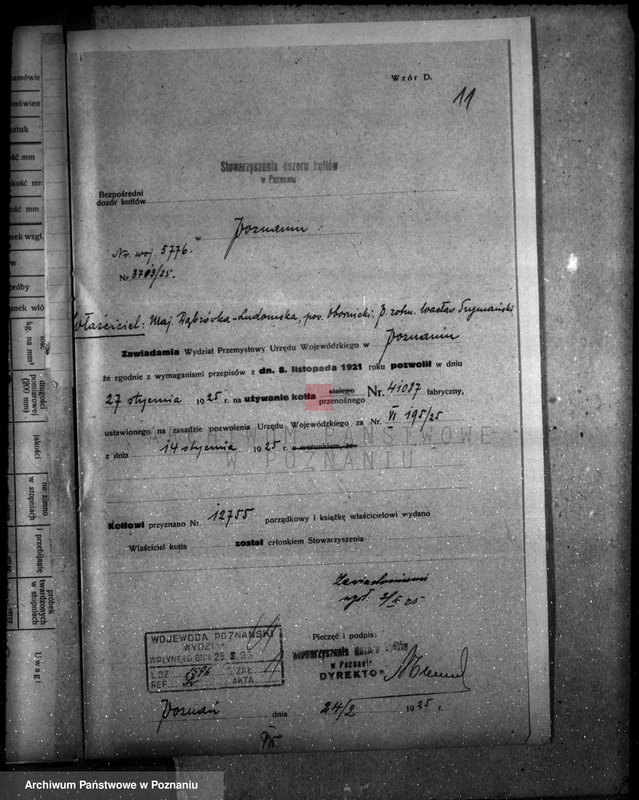 Wzór D.
11
Stowarzyszenie dozoru kotłów
w Poznaniu
Bezpośredni
dozór kotłów
w Poznaniu.
Nr. woj. 5776.
Nr. 3703/25.
Właściciel: Maj. Dąbrówka-Ludomska, pow. obornicki. P. rotm. Wacław Szymański
Zawiadamia Wydział Przemysłowy Urzędu Wojewódzkiego w Poznaniu
że zgodnie z wymaganiami przepisów z dn. 8. listopada 1921 roku pozwolił w dniu
27 stycznia 1925 r. na używanie kotła stałego przenośnego Nr. 41087 fabryczny,
ustawionego na zasadzie pozwolenia Urzędu Wojewódzkiego za Nr. VI 195/25
z dnia 14 stycznia 1925 r. z warunkiem, że
ARCHIWUM PAŃSTWOWE
W POZNANIU
Kotłowi przyznano Nr. 12755 porządkowy i książkę właścicielowi wydano
Właściciel kotła został członkiem Stowarzyszenia
Zawiadomienie
WOJEWODA POZNAŃSKI
WYDZIAŁ
WPŁYNĘŁO DNIA 25.
L. DZ. 1376 ZAŁ.
REF. AKTA
Pieczęć i podpis:
Stowarzyszenie dozoru kotłów
w Poznaniu
DYREKTOR
Poznań dnia 24/2 1925 r.
amówie
mówien
sztuk
ość mm
okość mm
ość mm
nek wzgl.
w
próby
nek wló
kg. na mm²
długości
pomiarowej
(200 mm)
jakości
na zimno
w stopniach
i przebijanie
próbek
twardzonych
w stopniach
Uwagi
Archiwum Państwowe w Poznaniu